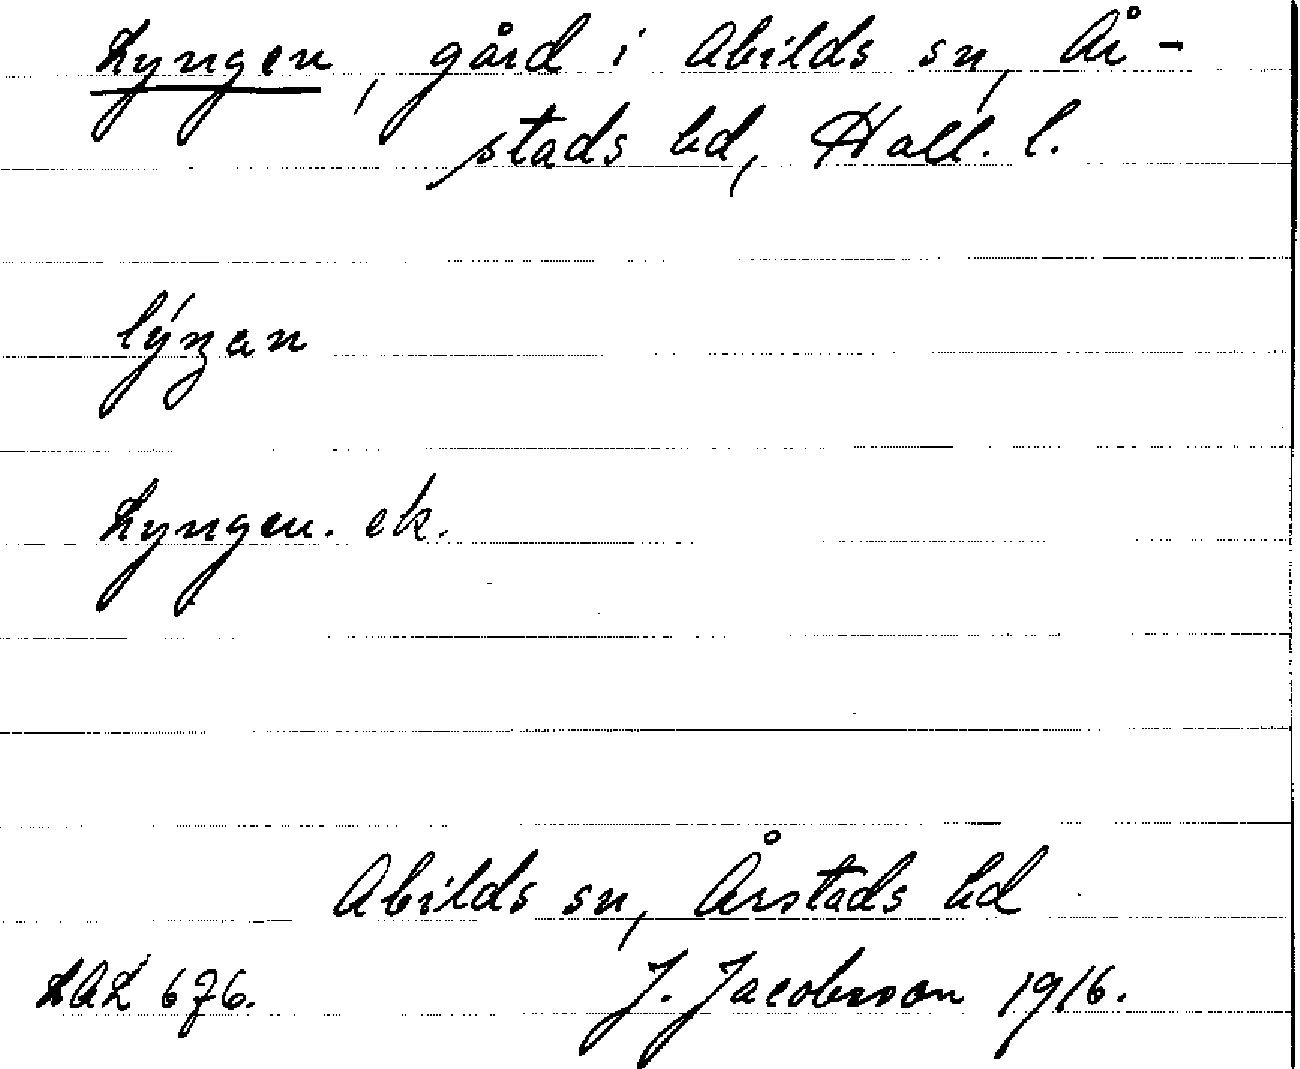 Lyngen, gård i Abilds sn, År-
stads hd, Hall. l.
lýŋan
Lyngen. ek.
Abilds sn, Årstads hd
LAL 676. J. Jacobsson 1916.